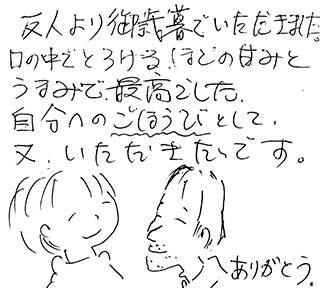 友人より御歳暮でいただきました。
口の中でとろける、ほどの甘みと
うまみで、最高でした。
自分へのごほうびとして、
又、いただきたいです。
ありがとう。